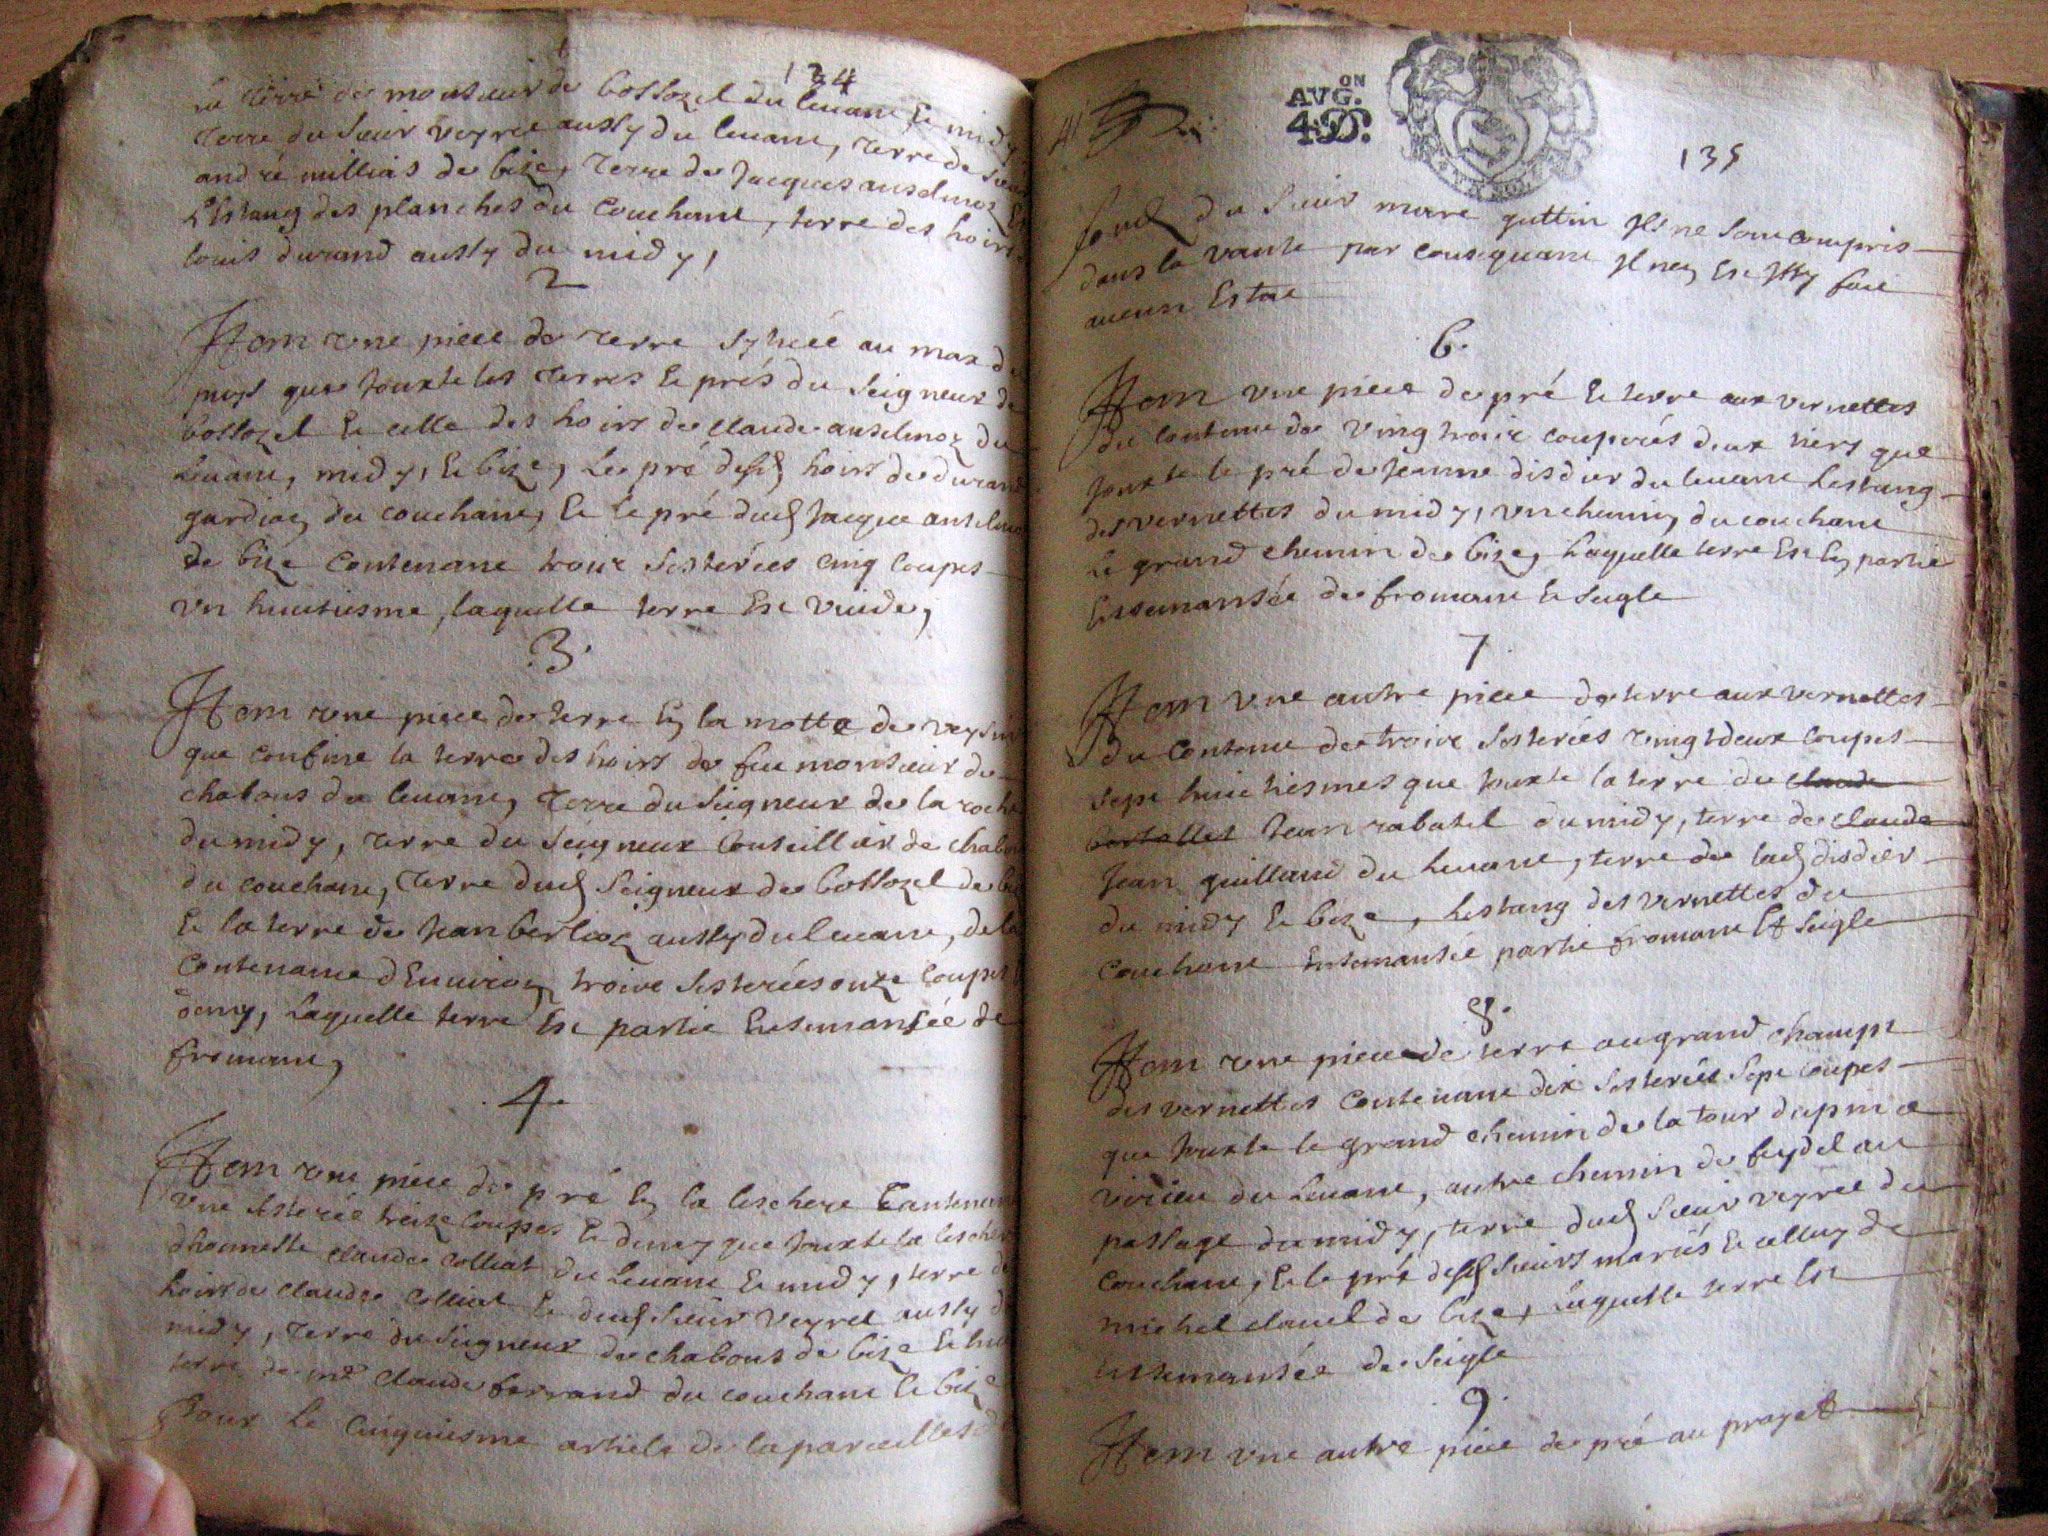 134
la terre de monsieur de bossozel du levant et midy
terre du sieur veyret aussy du levant, terre de sieur
andré millias de bize, terre de Jacques anselmoz et
L'Estang des planches du couchant, terre des hoirs
louis durand aussy du midy,
2
Item une piece de terre syhuée au max de
puys que Jouxte les terres et prés du seigneur de
bossozel et celle des hoirs de claude anselmoz du
levant, midy, et bize, Le pré desd hoirs de durand
gardioz du couchant, et le pré dud Jacque anselmoz
de bize contenant troix sesterées cinq coupes
un huitiesme, laquelle terre est vuide,
3.
Item une piece de terre en la motte de veysin
que confine la terre des hoirs de feu monsieur de
chabons du levant, terre du seigneur de la roche
du midy, terre du seigneur conseillier de chabons
du couchant, terre dud seigneur de bossozel de bize
et la terre de Jean berlioz aussy du levant, de la
contenance d'Environ troix sesterées onze coupes
demy, Laquelle terre est partie ensemansée de
fromant,
4.
Item une piece de pré en la leschere contenant
une sesterée treize coupes et demy que Jouxte la leschere
d'honneste claude colliat du levant et midy, terre de
hoirs de claude colliat et dud sieur veyret aussy du
midy, terre du seigneur de chabons de bize et
terre de mre claude ferrand du couchant et bize
Pour le cinquiesme article de la parcelles
AVG.ON
4.D.
135
fond du sieur marc guttin Ils ne sont compris
dans la vante par consequant Il n'en est Issy fait
aucun Estat
6.
Item une piece de pré et terre aux vernettes
du contenu de vingt troix couperés deux tiers que
Jouxte le pré de Jeanne disdier du levant Lestang
des vernettes du midy, un chemin du couchant
le grand chemin de bize, Laquelle terre est en partie
Ensemansée de fromant et seigle
7
Item une autre piece de terre aux vernettes
du contenu de troix sesterées vingt deux coupes
sept huitiesmes que Jouxte la terre de claude
bertollet Jean rabatel du midy, terre de claude
Jean guilland du levant, terre de lad disdier
du midy et bize, Lestang des vernettes du
couchant Ensemansée partie fromant Et seigle
8.
Item une piece de terre au grand champt
des vernettes contenant dix sesterées sept coupes
que Jouxte le grand chemin de la tour du pin a
virieu du levant, autre chemin de feydel au
passage du midy, terre dud sieur veyret du
couchant, et le pré desd sieurs mariés et celluy de
michel clavel de bize, Laquelle terre est
ensemansée de seigle
9.
Item une autre piece de pré au prayet